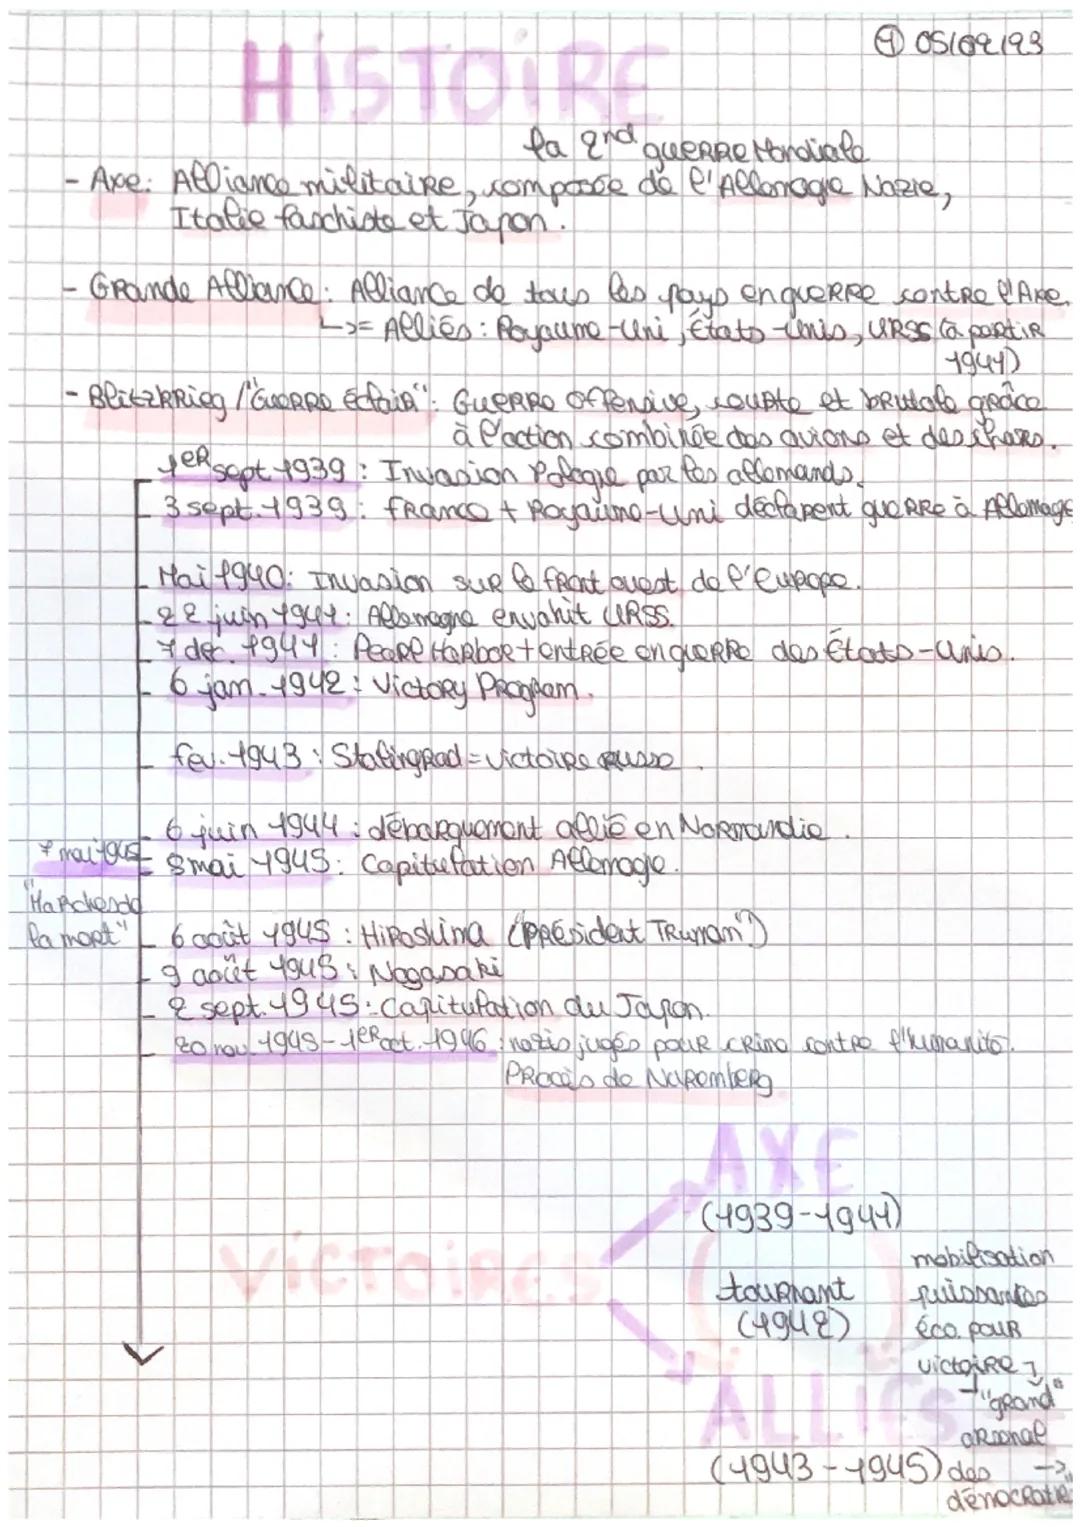 ① 05/09/23
HISTOIRE
la 2nd guerre Mondiale
- Axe: Alliance militaire, composée de l'Allemagne Nazie,
Italie faschiste et Japon.
- Grande Alliance: Alliance de tous les pays en guerre contre l'Axe.
↳= Alliés: Royaume-Uni, États-Unis, URSS (à partir
1941)
- Blitzkrieg / "Guerre éclair": Guerre offensive, courte et brutale grâce
à l'action combinée des avions et des chars.
1er sept 1939: Invasion Pologne par les allemands.
3 sept. 1939: France + Royaume-Uni déclarent guerre à Allemagne
Mai 1940: Invasion sur le front ouest de l'Europe.
22 juin 1941: Allemagne envahit URSS.
7 dec. 1941: Pearl Harbor + entrée en guerre des États-Unis.
6 jan. 1942: Victory Program.
fev. 1943: Stalingrad = victoire russe.
6 juin 1944: débarquement allié en Normandie.
7 mai 1945
8 mai 1945: Capitulation Allemagne.
"Marches de
la mort"
6 août 1945: Hiroshima (président Truman")
9 août 1945: Nagasaki
2 sept. 1945: Capitulation du Japon.
20 nov. 1945 - 1er oct. 1946: nazis jugés pour crime contre l'humanité.
Procès de Nuremberg
AXE
(1939-1941)
VICTOIRES
tournant
(1942)
mobilisation
puissantes
éco. pour
victoire
→ "grand
arsenal
des →
démocratie"
ALLIÉS
(1943-1945)